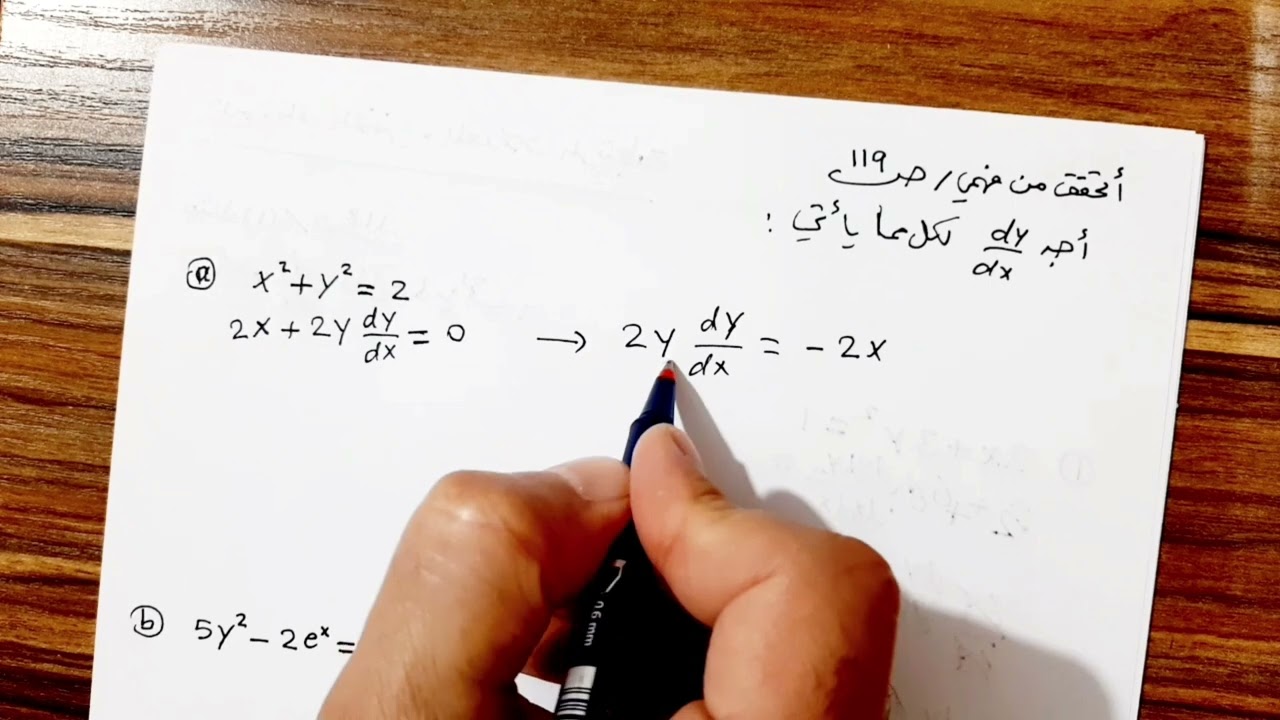 أتحقق من فهمي / ص 119
أجد dy/dx لكل مما يأتي :
ⓐ x² + y² = 2
2x + 2y dy/dx = 0 → 2y dy/dx = - 2x
ⓑ 5y² - 2eˣ =
0.6 mm